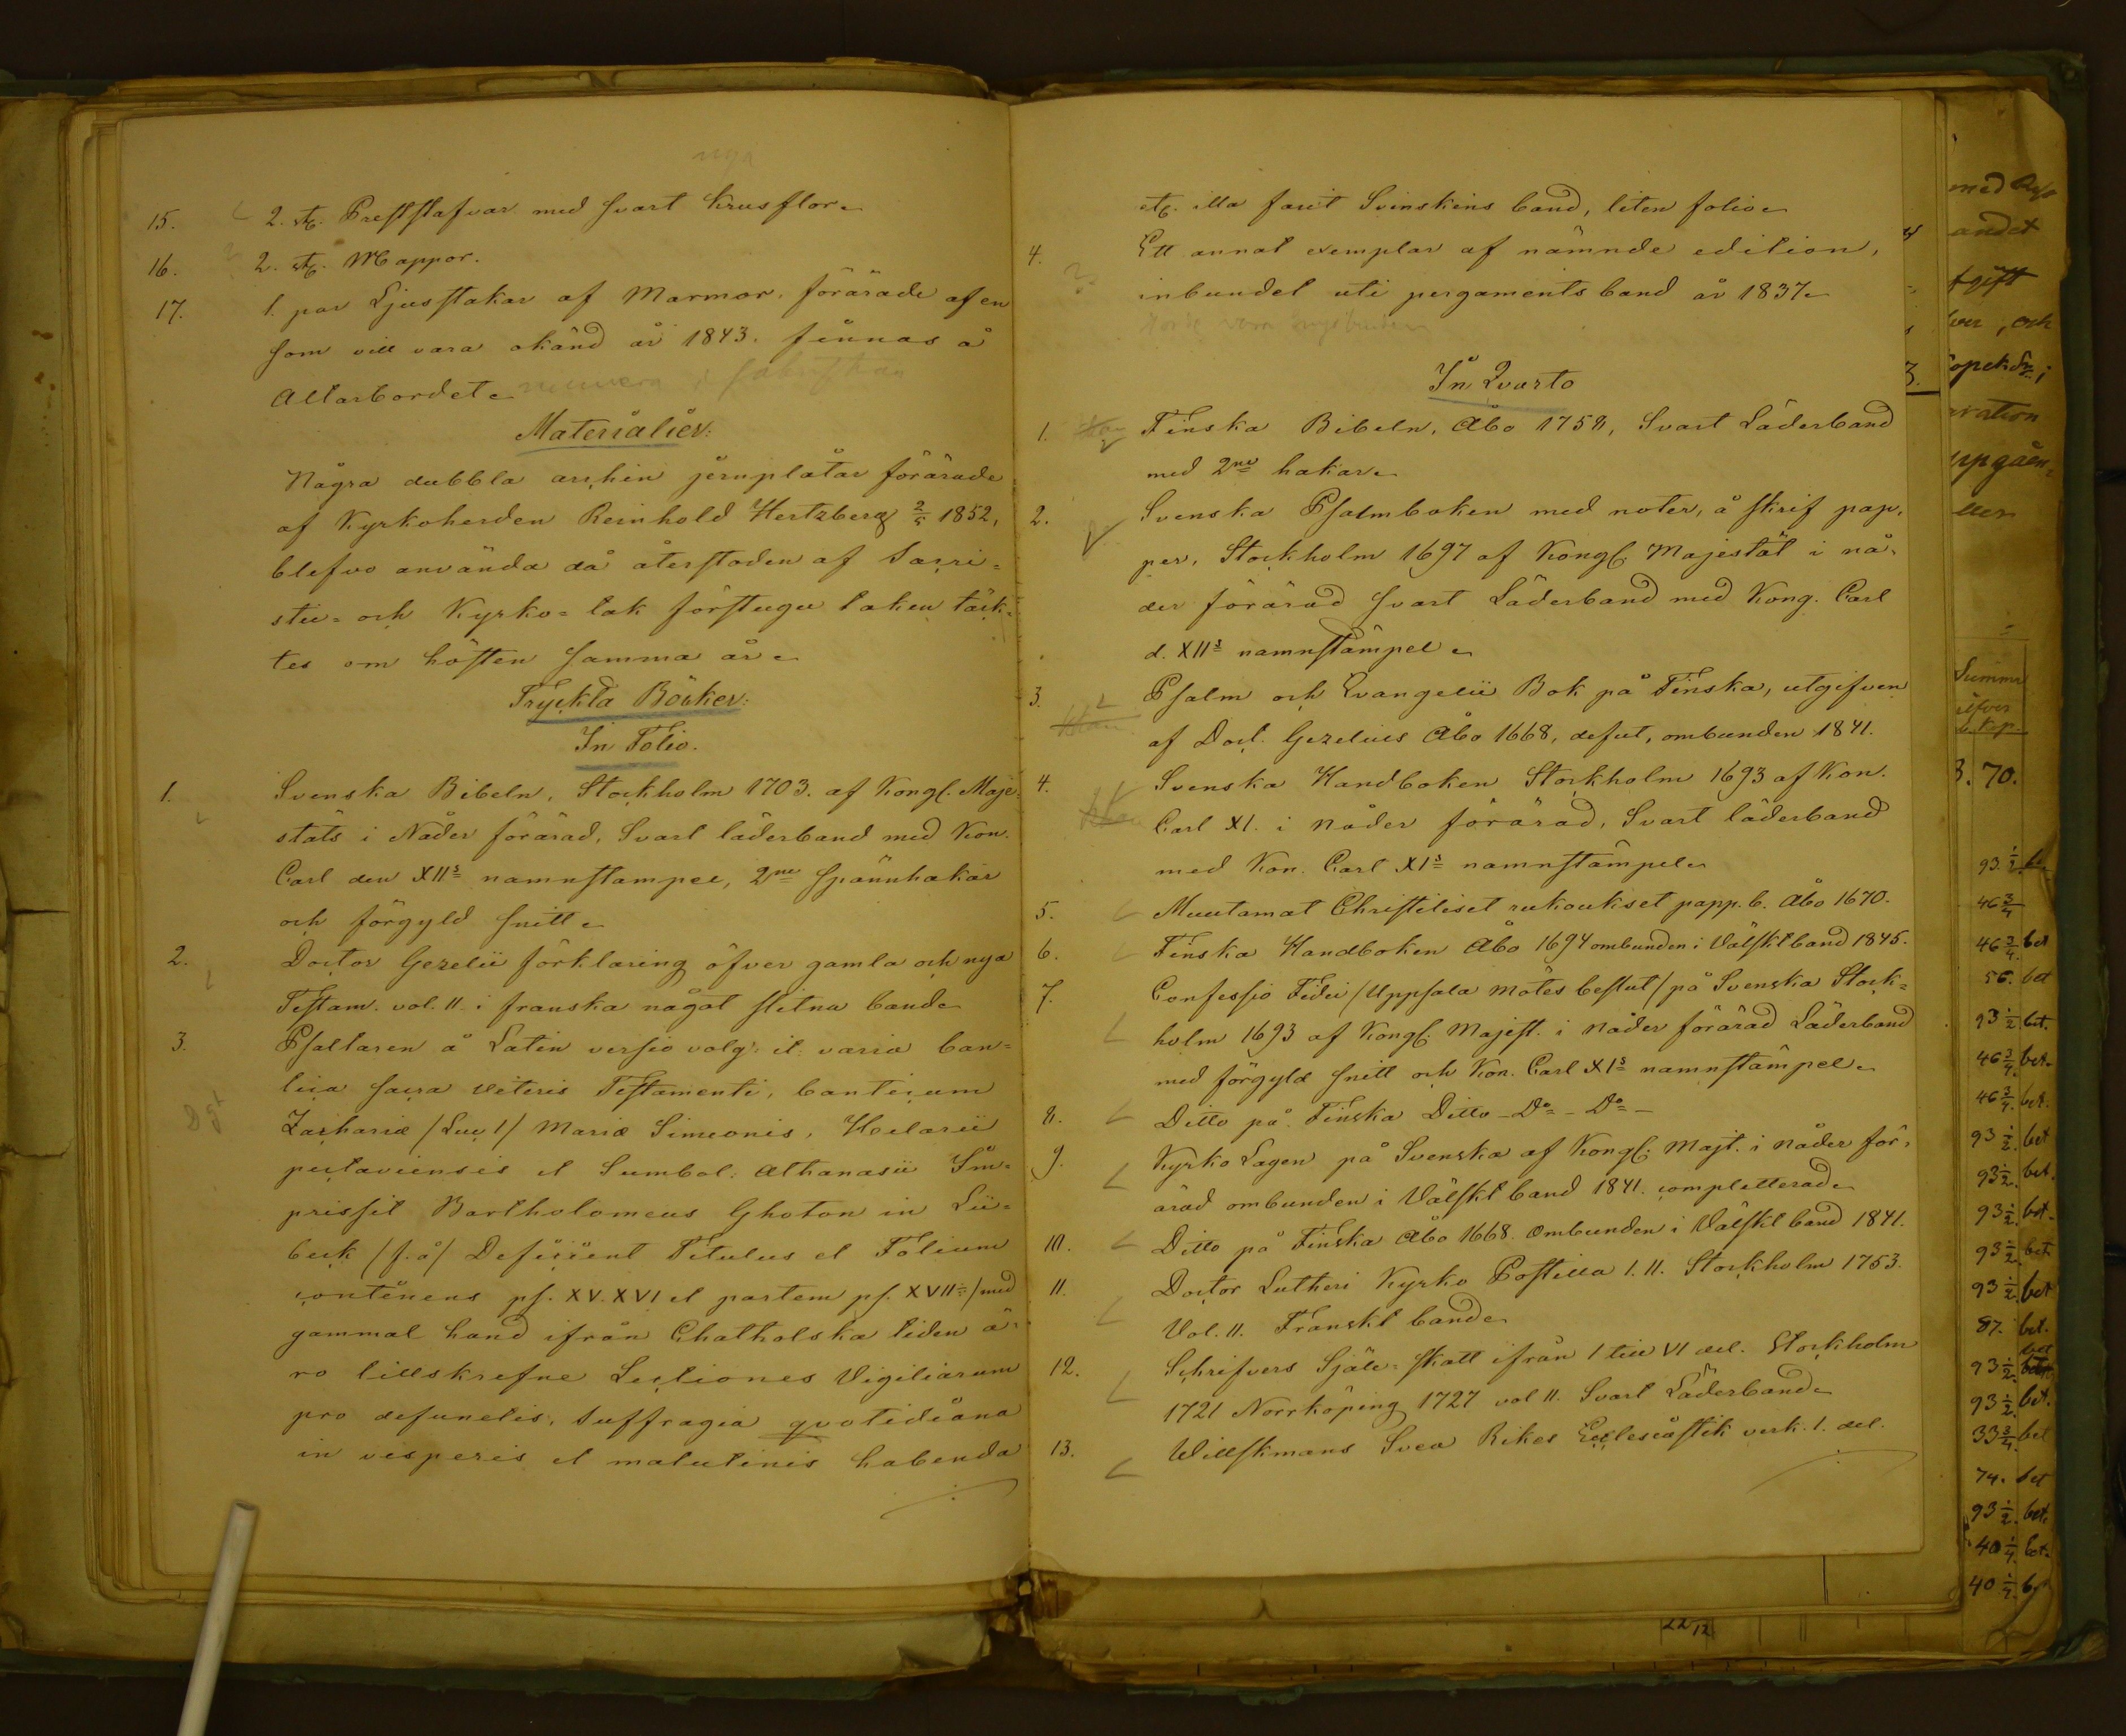 nya
15. 2. st. Prestslafvar med svart krusflor.
16. 2. st. Mappor.
17. 1. par Ljusstakar af Marmor, förärade af en
som vill vara okänd år 1843. finnas å
Altarbordet. numera i sakristian
Materialier:
Några dubbla arschin jernplåtar förärade
af Kyrkoherden Reinhold Hertzberg 2/5 1852,
blefvo använda då återstoden af Sacri-
stie- och Kyrko-tak förstugu taken täck-
tes om hösten samma år.
Tryckta Böcker:
In Folio.
1. Svenska Bibeln, Stockholm 1703. af Kongl. Maje-
stäts i Nåder förärad, Svart läderband med Kon.
Carl den XIIs namnstämpel, 2ne spännhakar
och förgyld snitt.
2. Doctor Gezelii förklaring öfver gamla och nya
Testam. vol. II. i franska något slitna band.
3. Psaltaren å Latin versio volg: it: varia Can-
tica sacra veteris Testamenti, Canticum
Zachariæ /Luc 1/ Mariæ Simeonis, Hilarii
pictaviensis et Sumbol: Athanasii Im-
prissit Bartholomeus Ghoton in Lü-
beck /s.å/ Deficient Titulus et Folium
continens ps. XV. XVI et partem ps. XVII /med
gammal hand ifrån Chatholska tiden ä-
ro tillskrefne Lectiones Vigiliarum
pro defunctis, suffragia qvotidiana
in vesperis et matutinis habenda
etc. illa farit Svinskins band, liten folio.
4. Ett annat exemplar af nämnde edition,
inbundet uti pergaments band år 1837.
In Qvarto
1. Finska Bibeln, Åbo 1758, Svart Läderband
med 2ne hakar.
2. Svenska Psalmboken med noter, å skrif pap-
per, Stockholm 1697 af Kongl. Majestät i nå-
der förärad svart Läderband med Kong. Carl
d. XIIs namnstämpel.
3. Psalm och Evangelii Bok på Finska, utgifven
af Doct. Gezelius Åbo 1668, defut, ombunden 1841.
4. Svenska Handboken Stockholm 1693 af Kon.
Carl XI. i nåder förärad, Svart läderband
med Kon. Carl XIs namnstämpel.
5. Muutamat Christiliset rukoukset papp. b. Åbo 1670.
6. Finska Handboken Åbo 1694 ombunden i Välskt band 1845.
7. Confessio Fidei /Uppsala mötes beslut/ på Svenska Stock-
holm 1693 af Kongl. Majest. i nåder förärad Läderband
med förgyld snitt och Kon. Carl XIs namnstämpel.
8. Ditto på Finska Ditto - Do - Do -
9. Kyrko Lagen på Svenska af Kongl. Majt. i nåder för-
ärad ombunden i Välskt band 1841. completterad.
10. Ditto på Finska Åbo 1668. ombunden i Välskt band 1841.
11. Doctor Lutheri Kyrko Postilla I. II. Stockholm 1753.
Vol. II. Franskt band.
12. Schrifvers Själa-skatt ifrån I till VI del. Stockholm
1721 Norrköping 1727 vol II. Svart Läderband.
13. Willskmans Svea Rikes Ecclesiastik verk. 1. del.
med
andet
tgift
, och
ration
uppgåen-
Summa
Kop.
3. 70.
93 1/2
46 3/4
46 3/4. bet
56. bet
93 1/2. bet.
46 3/4. bet.
46 3/4. bet.
93 1/2. bet
93 1/2. bet.
93 1/2. bet.
93 1/2. bet
93 1/2. bet
87. bet.
93 1/2. bet
93 1/2. bet.
33 3/4. bet
74. bet
93 1/2. bet.
40 1/4. bet.
40 1/4. b
22/12